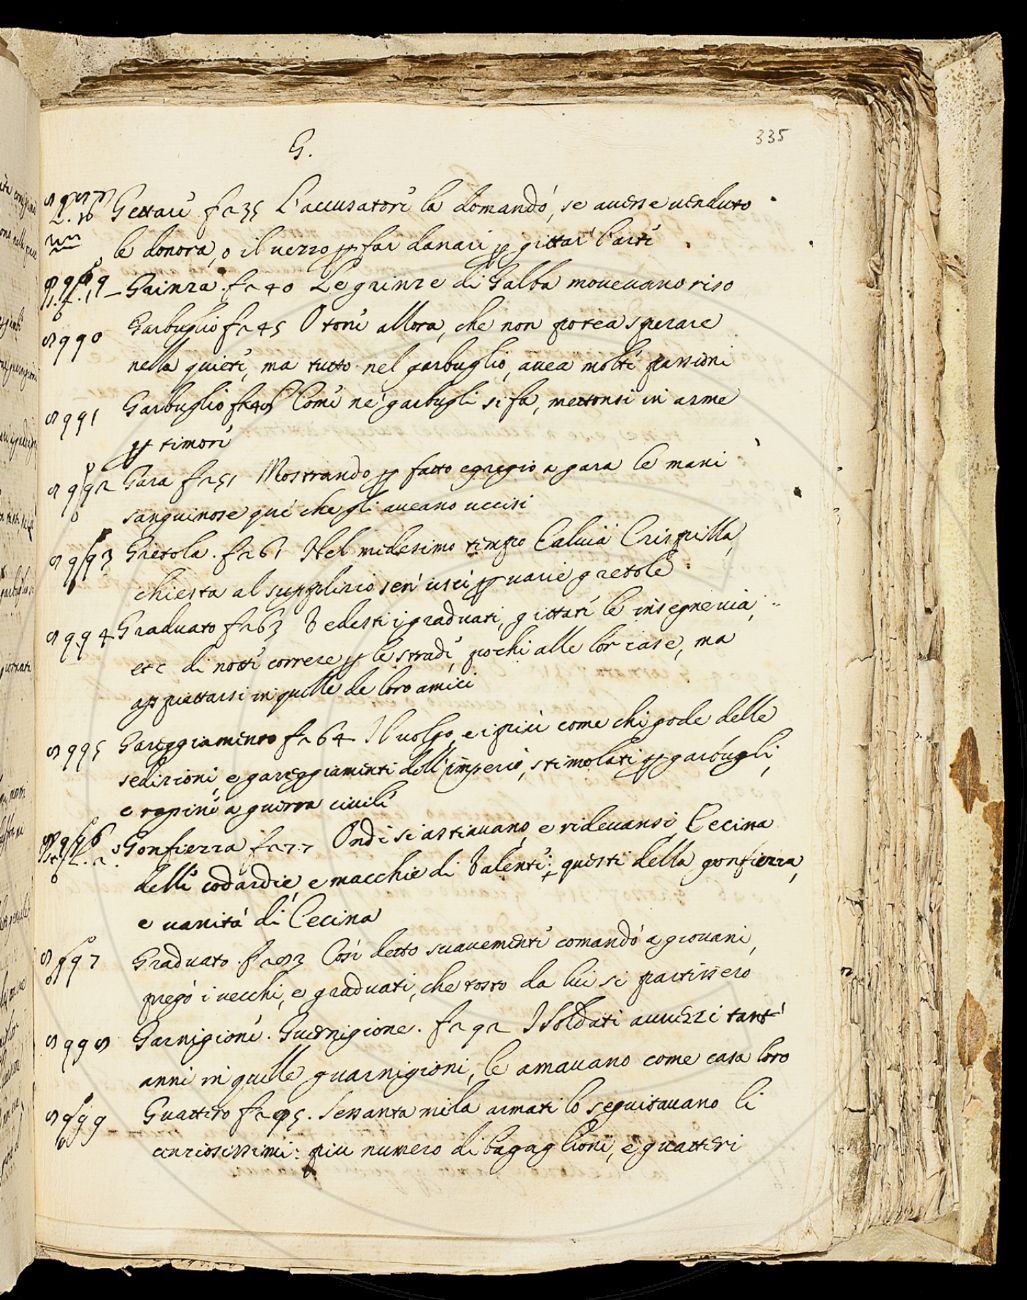 G.
335
Gettare f 235 L'accusatore la domandò, se avesse venduto
le donora, o il vezzo ꝑ far danari ꝑ gittar l'arti
Grinza f 240 Le grinze di Galba movevano riso
8990 Garbuglio f 245 Otone allora, che non potea sperare
nella quiete, ma tutto nel garbuglio, avea molte passioni
8991 Garbuglio f 240 Come ne' garbugli si fa, mettonsi in arme
ꝑ timore
8992 Gara f 251 Mostrando ꝑ fatto egregio a gara le mani
sanguinose que' che gli aveano uccisi
8993 Gretola. f 261 Nel medesimo tempo Calvia Crispilla,
chiesta al supplizio sen'uscì ꝑ varie gretole
8994 Graduato f 263 Vedesti i graduati, gittate le insegne via,
etc di notte correre ꝑ le strade, pochi alle lor case, ma
appiattarsi in quelle de loro amici
8995 Gareggiamento f 264 Il volgo, e i più come chi gode delle
sedizioni, e gareggiamenti dell'imperio, stimolati ꝑ garbugli,
e rapine a guerra civile
Gonfiezza f 277 Onde si astiavano, e ridevansi, Cecina
delle codardie, e macchie di Valente; questi della gonfiezza,
e vanità di Cecina
8997 Graduato. f 283 Così detto suavemente comandò a giovani,
pregò i vecchi, e graduati, che tosto da lui si partissero
8998 Garnigione. Guernigione. f 292 I Soldati avvezzi tant'
anni in quelle guarnigioni, le amavano come casa loro
8999 Guattero f 295. Sessanta mila armati lo seguitavano li
cenziosissimi: più numero di bagaglioni, e guatteri